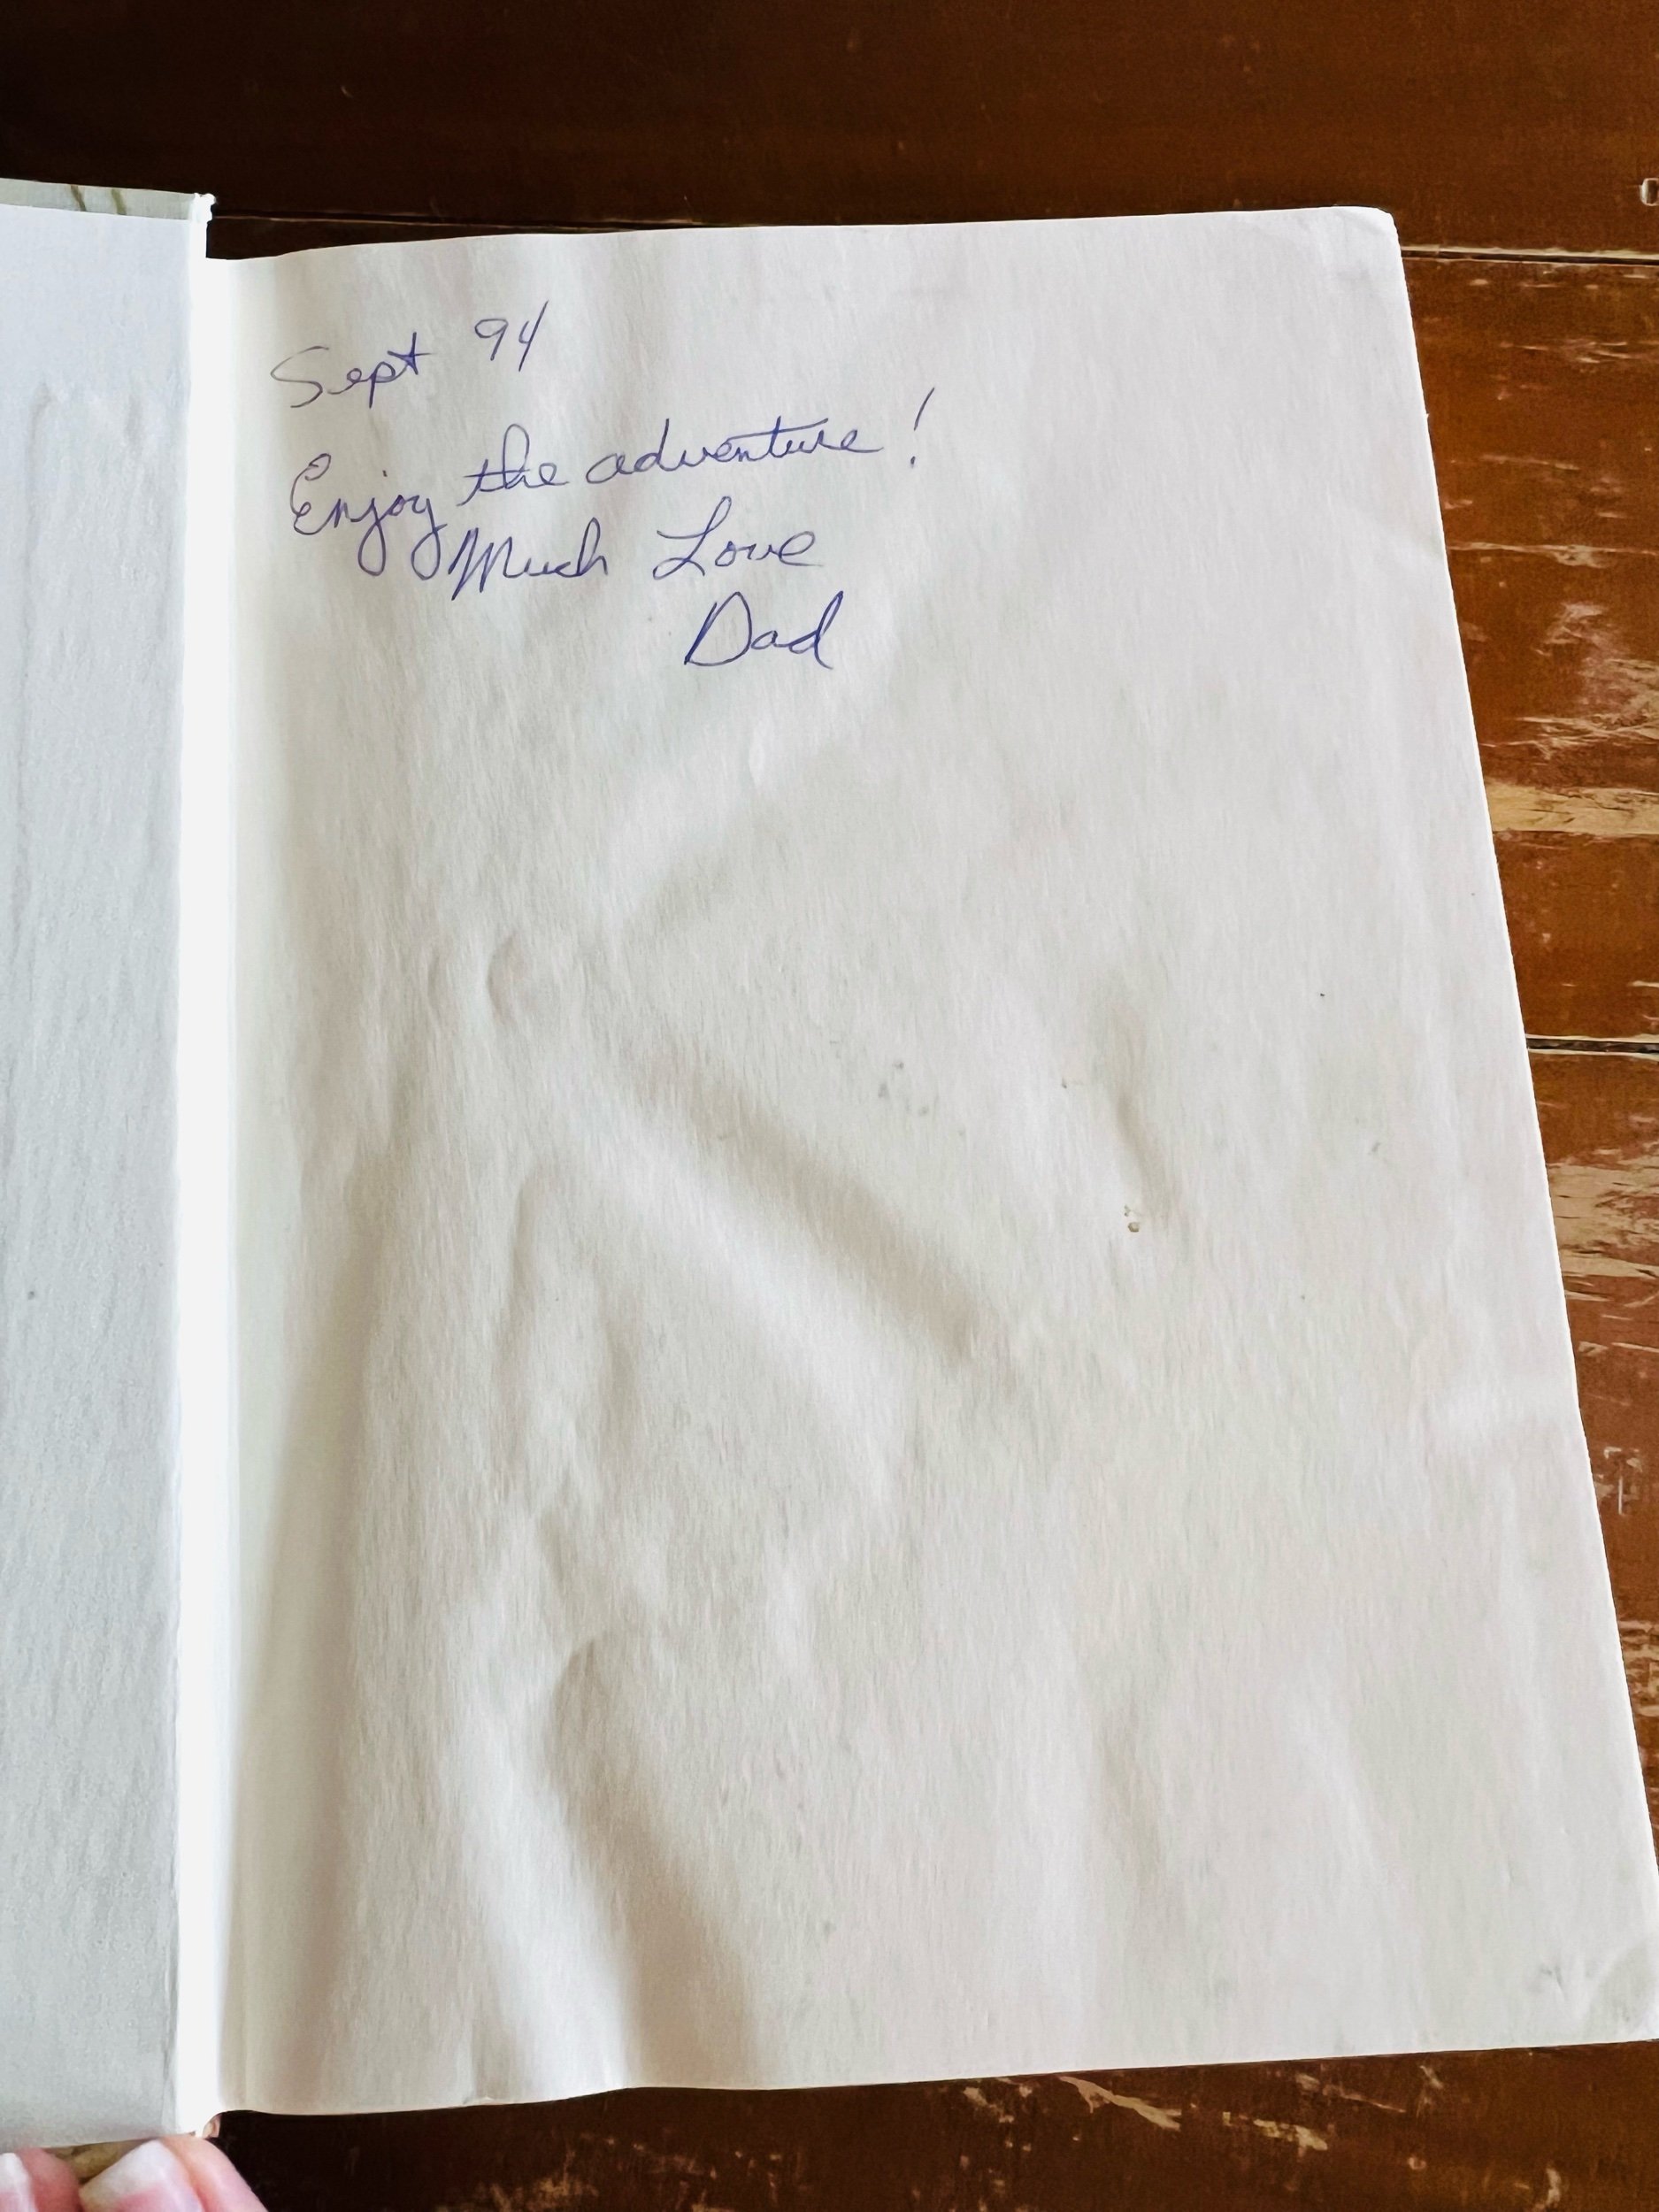 Sept 94
Enjoy the adventure!
Much Love
Dad